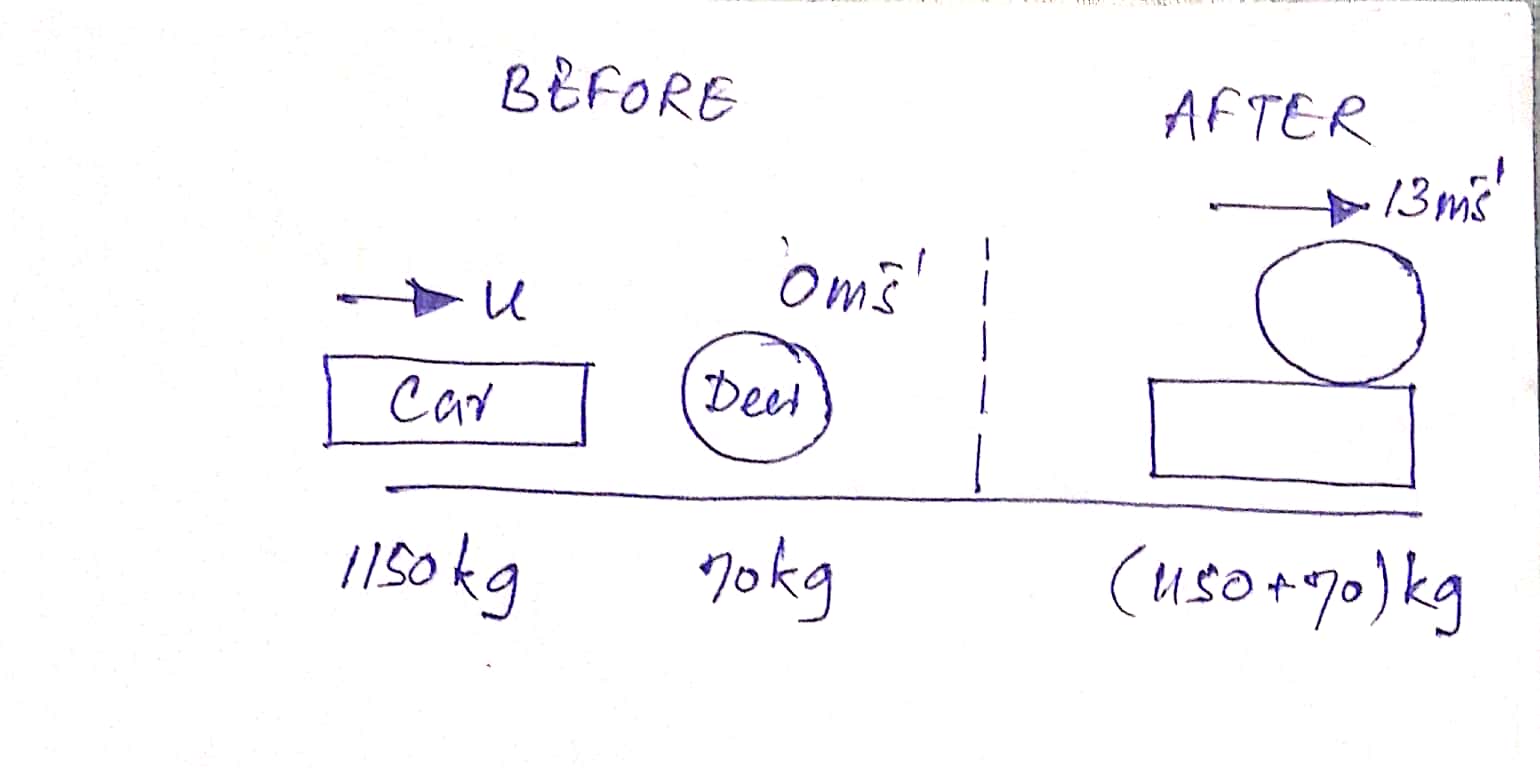 BEFORE
AFTER
13ms⁻¹
u
0ms⁻¹
Car
Deer
1150kg
70kg
(1150+70)kg